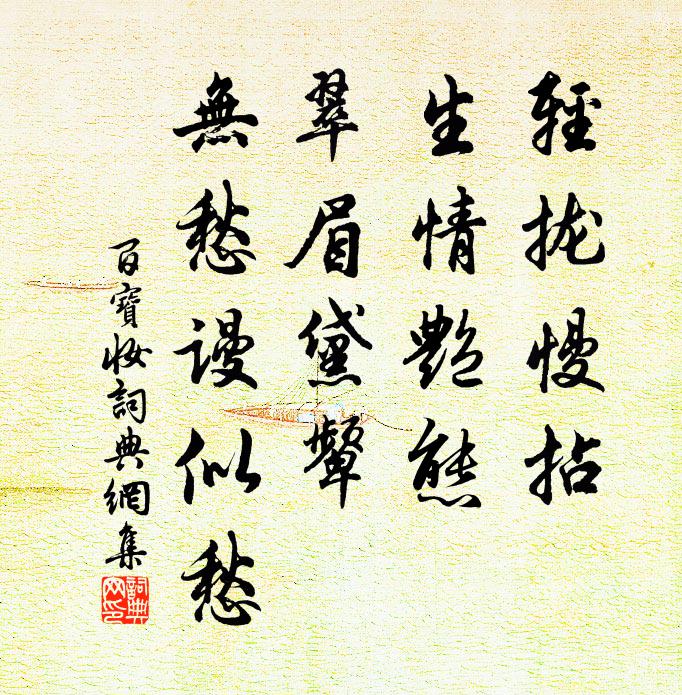 輕拢慢拈
生情艷態
翠眉黛顰
無愁謾似愁
百寶妝詞典網集
詞典
网印